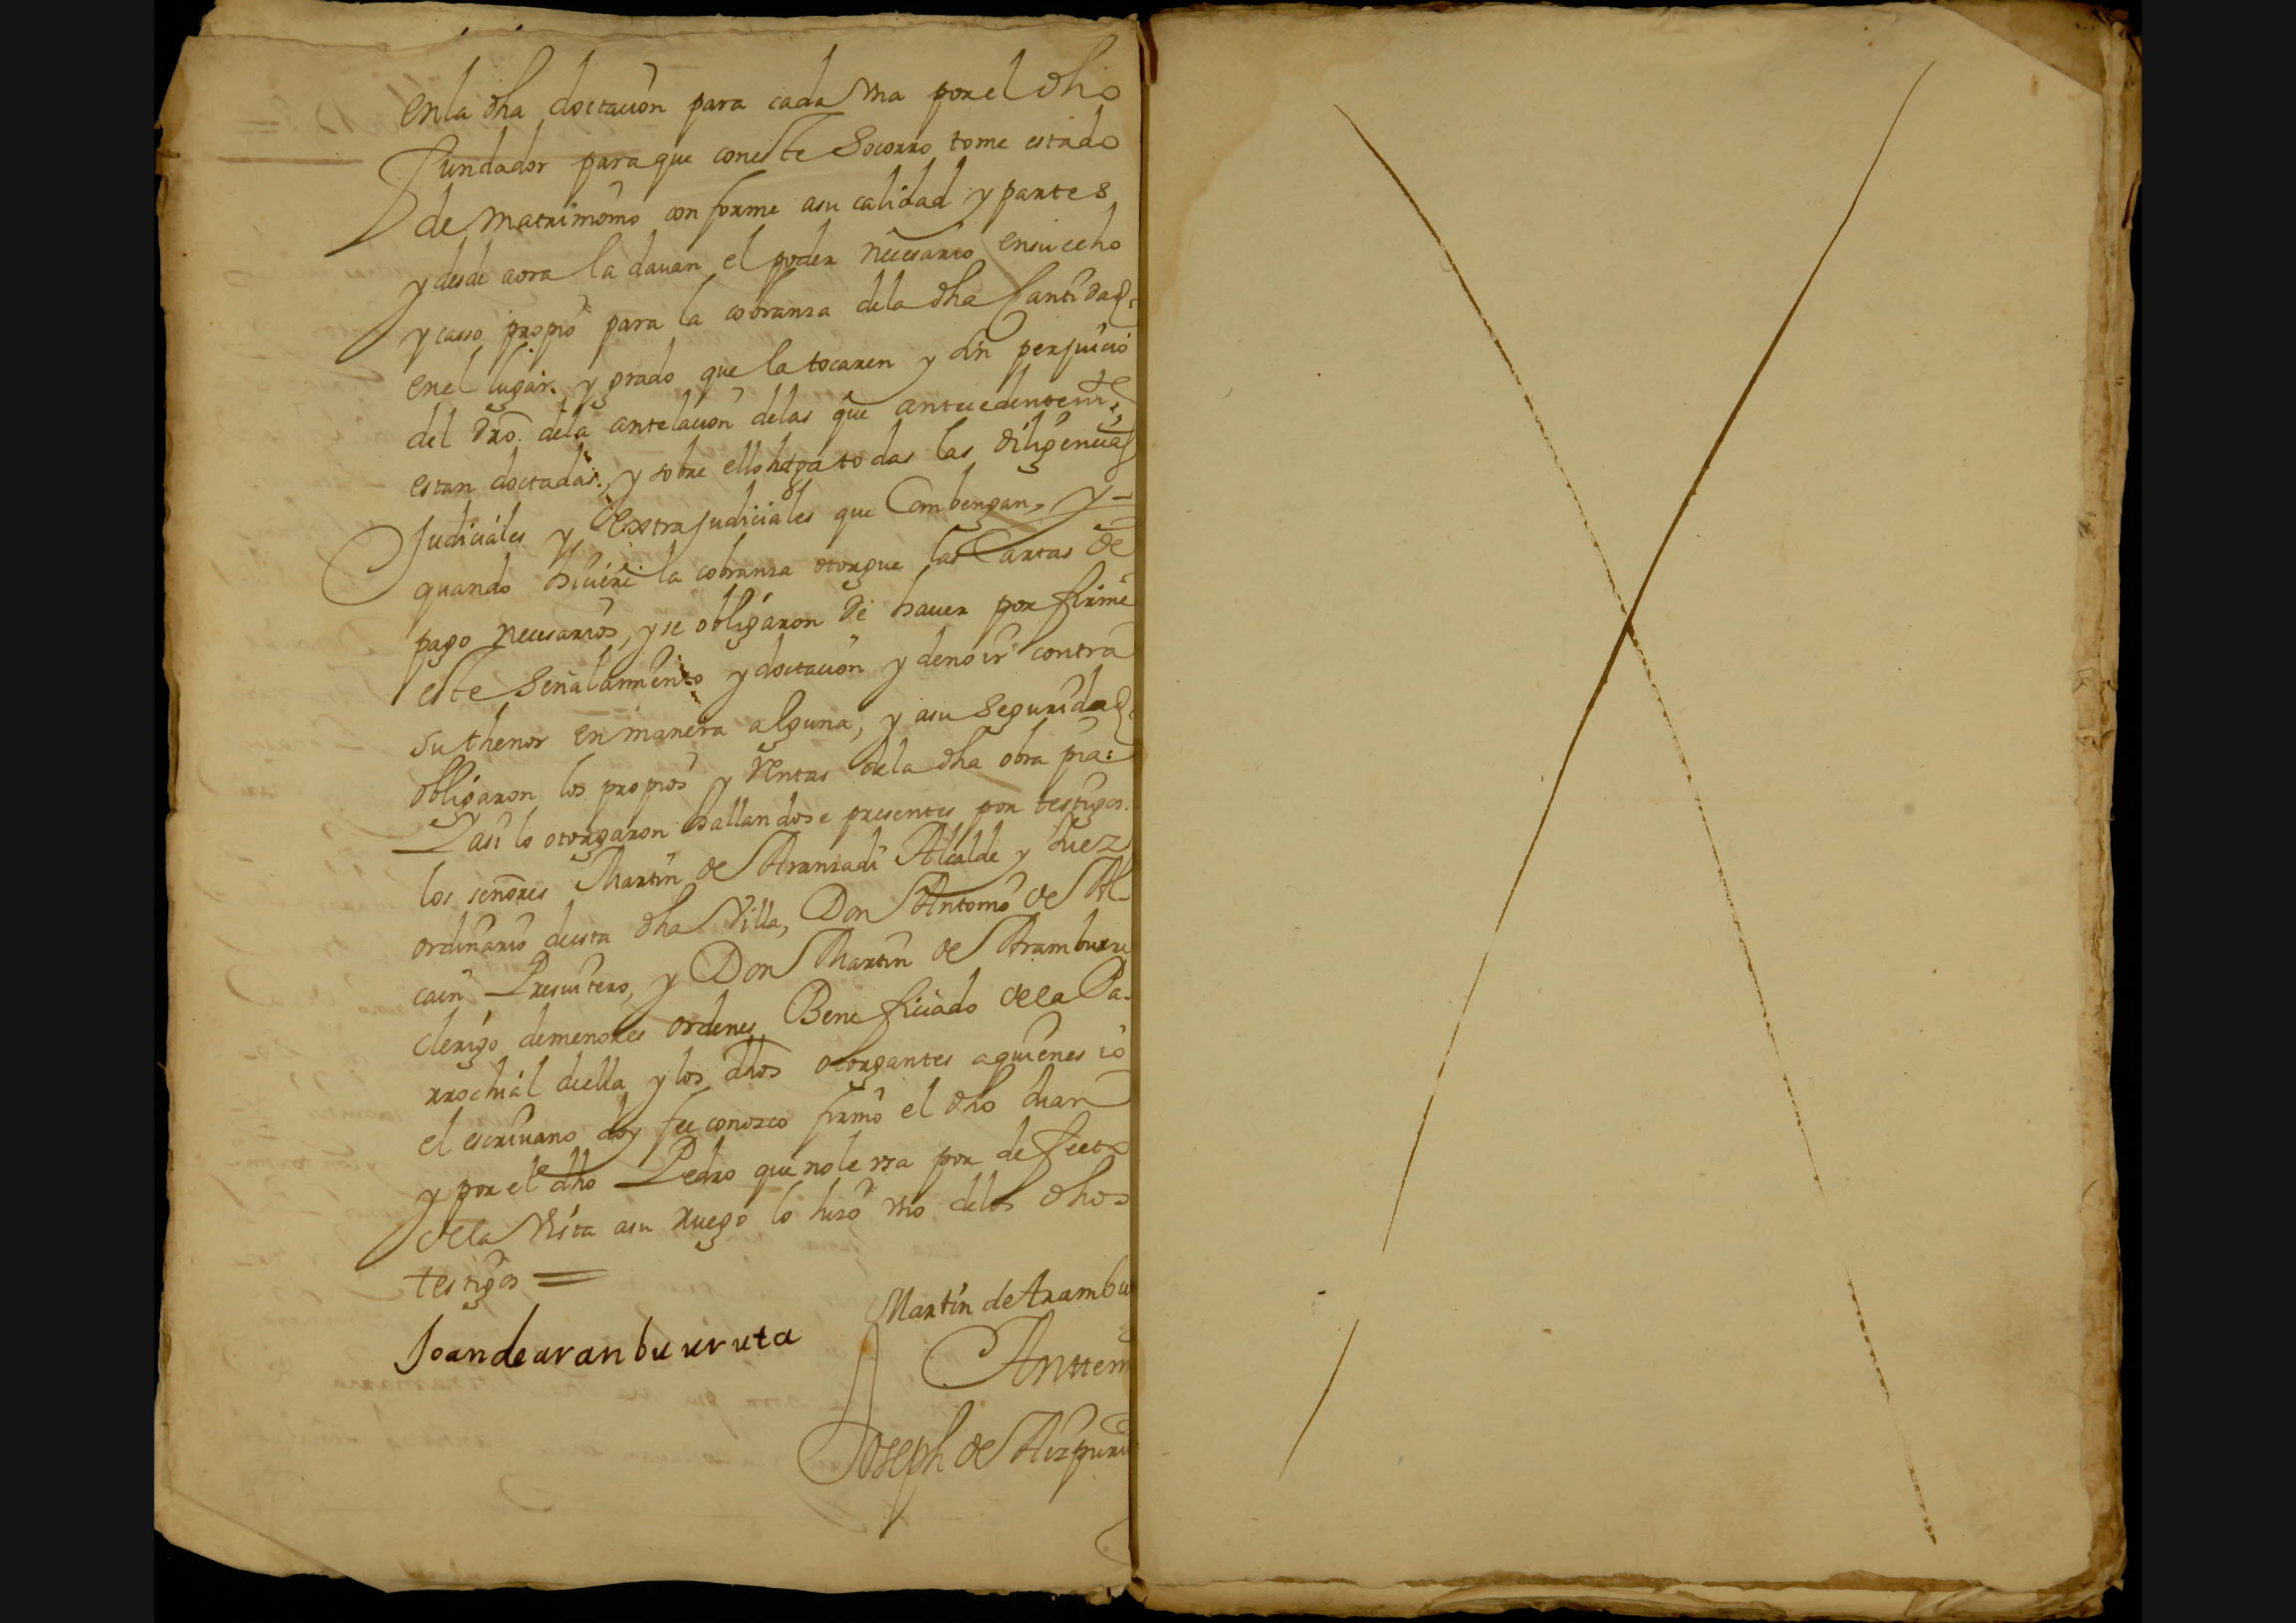 en la dha doctacion para cada vna por el dho
fundador para que con este socorro tome estado
de matrimonio conforme a su calidad y partes
y desde aora la dauan el poder necesario en su fecho
y casso propio para la cobranza de la dha cantidad
en el lugar y grado que la tocaren y sin perjuicio
del dro. de la antelacion de las que antecedentemte
estan doctadas, y sobre ello haga todas las diligencias
judiciales y extrajudiciales que combengan, y
quando hiciere la cobranza otorgue las cartas de
pago necesarios, y se obligaron de hauer por firme
este señalamiento y doctacion y de no ir contra
su thenor en manera alguna, y a su seguridad
obligaron los propios y rentas de la dha obra pia:
Y asi lo otorgaron hallandose presentes por testigos
los señores Martin de Aranzadi Alcalde y Juez
ordinario desta dha Villa, Don Antonio de Al
cain Presuitero, y Don Martin de Aramburu
clerigo de menores ordenes Beneficiado de la Pa
rrochial della y los dhos otorgantes a quienes io
el escriuano doy fee conozco firmo el dho Juan
y por el dho Pedro que no le vsa por defecto
de la vista a su ruego lo hizo vno de los dhos
testigos =
Martin de Arambu
Joan de aranbuuruta
Anttem
Joseph de Aizpuru